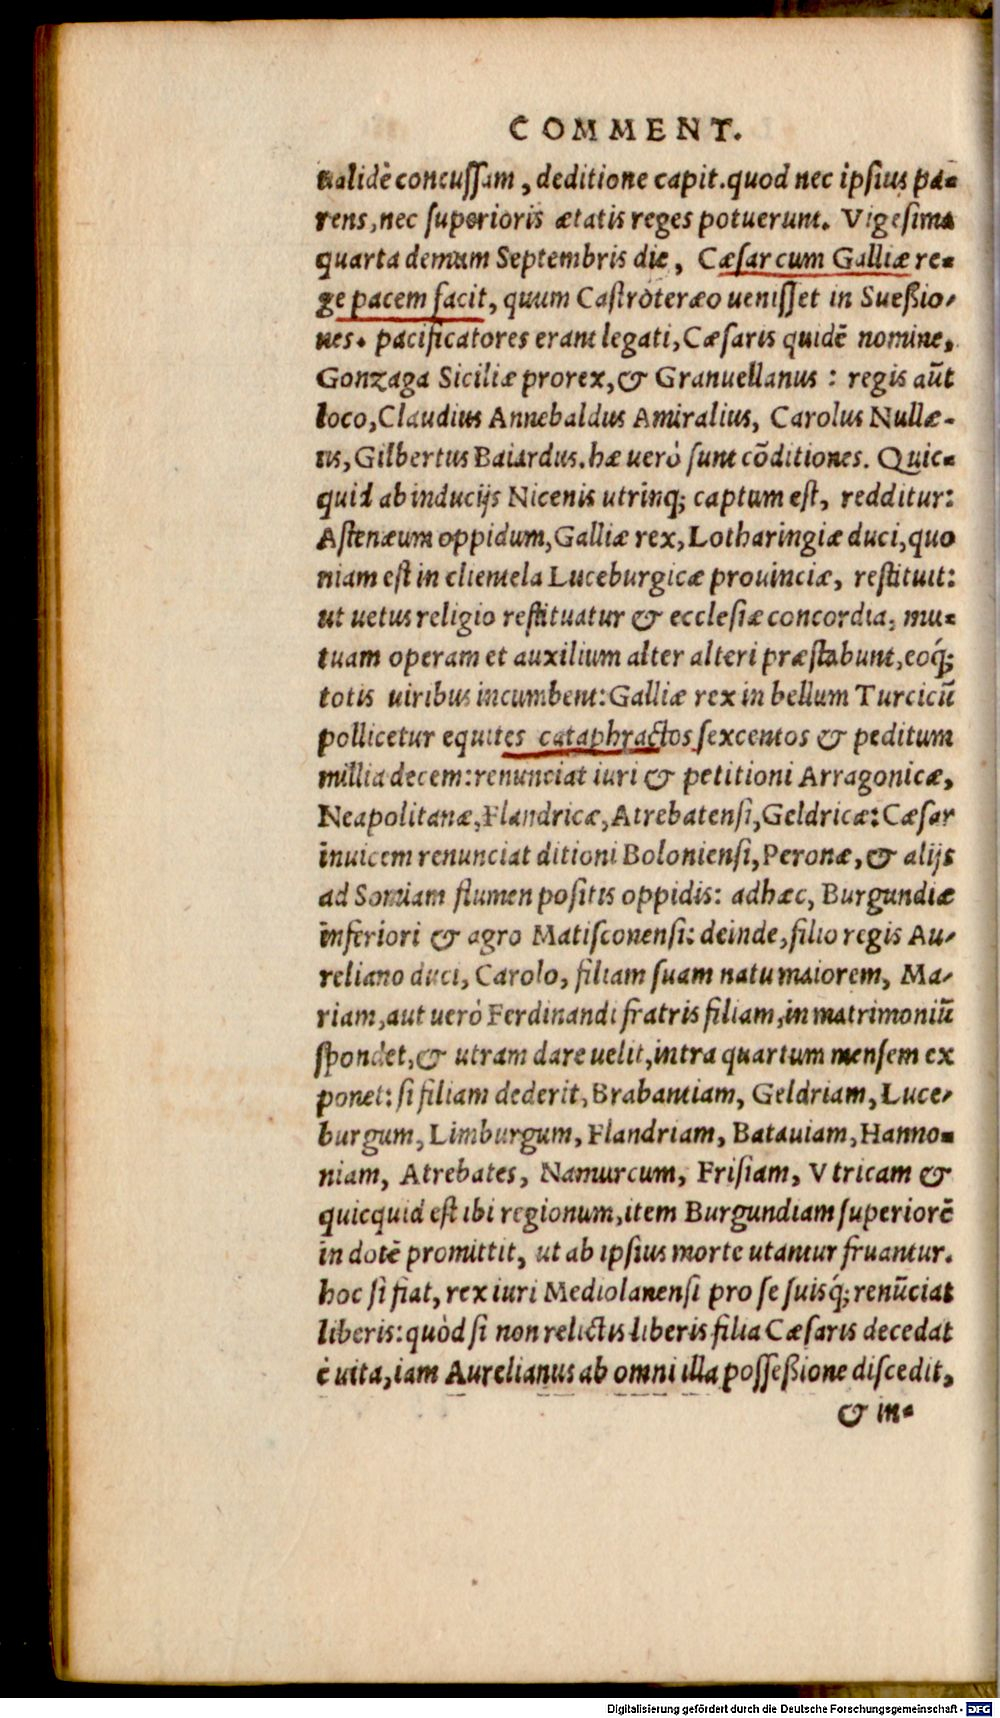 COMMENT.
ualidè concussam, deditione capit. quod nec ipsius pa-
rens, nec superioris ætatis reges potuerunt. Vigesima
quarta demum Septembris die, Cæsar cum Galliæ re-
ge pacem facit, quum Castròteræo uenisset in Sueßio-
nes. pacificatores erant legati, Cæsaris quidẽ nomine,
Gonzaga Siciliæ prorex, & Granuellanus : regis aũt
loco, Claudius Annebaldus Amiralius, Carolus Nullæ-
us, Gilbertus Baiardus. hæ uerò sunt cõditiones. Quic-
quid ab inducijs Nicenis utrinq; captum est, redditur:
Astenæum oppidum, Galliæ rex, Lotharingiæ duci, quo
niam est in clientela Luceburgicæ prouinciæ, restituit:
ut uetus religio restituatur & ecclesiæ concordia, mu-
tuam operam et auxilium alter alteri præstabunt, eoq́;
totis uiribus incumbent: Galliæ rex in bellum Turcicũ
pollicetur equites cataphractos sexcentos & peditum
millia decem: renunciat iuri & petitioni Arragonicæ,
Neapolitanæ, Flandricæ, Atrebatensi, Geldricæ: Cæsar
inuicem renunciat ditioni Boloniensi, Peronæ, & alijs
ad Somiam flumen positis oppidis: adhæc, Burgundiæ
inferiori & agro Matisconensi: deinde, filio regis Au-
reliano duci, Carolo, filiam suam natu maiorem, Ma-
riam, aut uerò Ferdinandi fratris filiam, in matrimoniũ
spondet, & utram dare uelit, intra quartum mensem ex
ponet: si filiam dederit, Brabantiam, Geldriam, Luce-
burgum, Limburgum, Flandriam, Batauiam, Hanno-
niam, Atrebates, Namurcum, Frisiam, Vtricam &
quicquid est ibi regionum, item Burgundiam superiorẽ
in dotẽ promittit, ut ab ipsius morte utantur fruantur.
hoc si fiat, rex iuri Mediolanensi pro se suisq́; renũciat
liberis: quòd si non relictis liberis filia Cæsaris decedat
è uita, iam Aurelianus ab omni illa posseßione discedit,
& in-
Digitalisierung gefördert durch die Deutsche Forschungsgemeinschaft - DFG